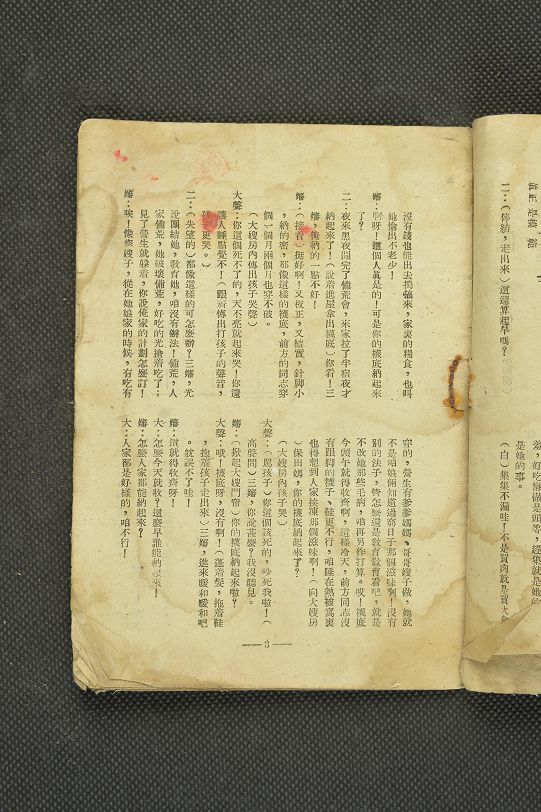 二：（停紡，走出來）這還算早嗎？
是她的事。
沒有錢也能出去搗騷來，家裏的糧食，也叫
她偷出不老少！
嬸：啊呀！這個人眞是的！可是你的襪底納起來
了？
二：夜來黑夜開完了備荒會，米家拉了半宿夜才
納起來了！（說着進屋拿出襪底）你看！三
嬸，俺納的一點不好！
嬸：（接着）挺好啊！又板正，又結實，針脚小
，納的密，都像這樣的襪底，前方的同志穿
個一個月兩個月也穿不破。
（大嫂房內傳出孩子哭聲）
大聲：你這個死不了的，天不亮就起來哭！你還
讓人睡點覺不！（跟着傳出打孩子的聲音，
孩子更哭。）
二：（失望的）都像這樣的可怎麼辦？三嬸，光
說團結她，教育她，咱沒有辦法！備荒，人
家備荒，她破壞備荒，好吃的光搶着吃了；
見了營生就躲着，你說俺家的計劃怎麼訂！
嬸：唉！像您嫂子，從在她娘家的時候，有吃有
穿的，營生有爹爹媽媽，哥哥嫂子做，她就
不是咱娘倆知道過窮日子那個滋味啊！沒有
別的法子，管怎麼還是教育教育看吧，就是
不改她那些毛病，咱再另作打算。哎！襪底
今頭午就得收齊啊，這樣冷天，前方同志沒
有跟脚的襪子、鞋更不行，咱睡在熱被窩裏
也得想到人家挨凍那個滋味啊！（向大嫂房
）保田媽，你的襪底納起來了？
（大嫂房內孩子哭）
大聲：（罵孩子）你這個該死的，吵死我啦！（
高聲問）三嬸，你說甚麼？我沒聽見。
嬸：（掀起大嫂門帘）你的襪底納起來啦？
大聲：哦！襪底呀，沒有啊！（蓬着髮，拖着鞋
，抱着孩子走出來）三嬸，進來暖和暖和吧
。就誤不了哇！
嬸：這就得收齊呀！
大：怎麼今天就收？這麼早誰能納起來！
嬸：怎麼人家都能納起來？
大：人家都是好樣的，咱不行！
— 3 —